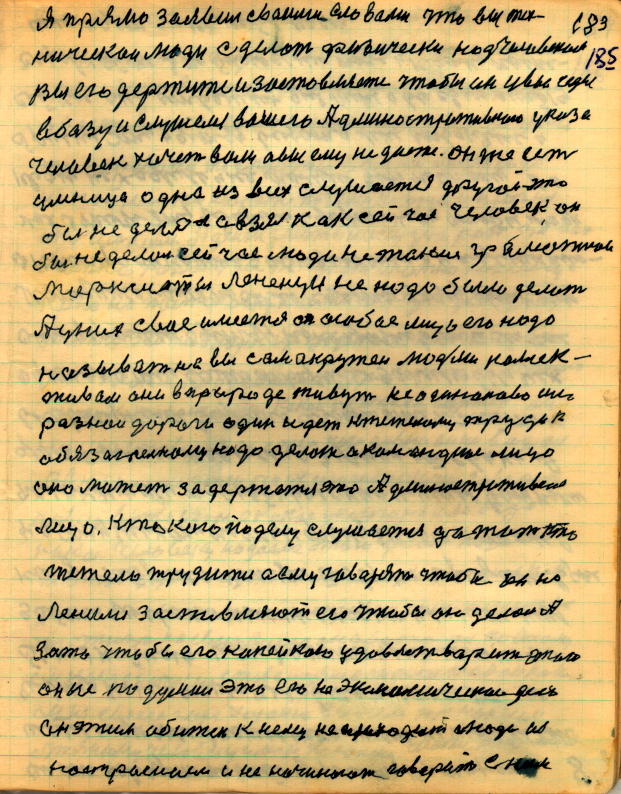 я прямо заявил своими словами что вы тех- 183
185
нической люди сделат физически над человеком
вы его держите и заставляете чтобы он у вас седи
в базу и слушел вашего Административного указа
Человек хочет вам а вы ему не даете. он же ест
умница одна из всех слушается другой это
бы не дела а взял как сейчас Человек он
бы не делал сейчас люди не такии грамотнаи
Марксисты Лененцы не надо было делат
А у них свае имеется особое лицо его надо
называт на вы сам окружен людми коллек-
тивам они в природе живут не одинаково
разнаи дороги один идет к тежелому труду к
обязателному надо делат а командное лицо
оно может задержатся это Административное
лицо. Кто кого по делу слушается да тот кто
тежело трудится а ему говарят чтобы он не
ленилс заставляют его чтобы он делал А
зато чтобы его копейкаю удовлетварит этого
он не подумал это его на экономическое дело
он этим обижен к нему не приходят люди из
настраением и не начинают говарить с ним